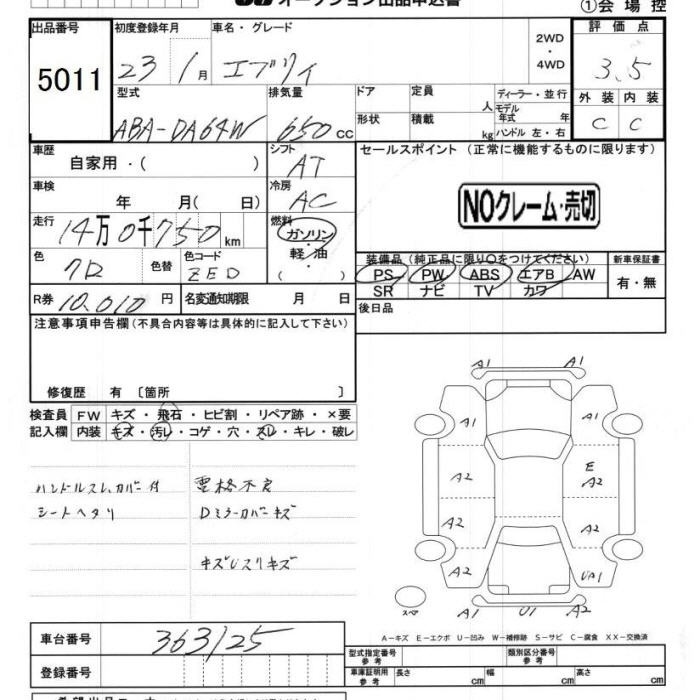 オークション出品申込書
①会場控
出品番号 初度登録年月 車名・グレード 評価点
5011 23 1月 エブリィ 2WD ・ 4WD 3.5
型式 排気量 ドア 定員 人 ディーラー・並行 外装 内装
ABA-DA64W 650cc 形状 積載 kg モデル年式 年 ハンドル 左・右 C C
車歴 自家用・( ) シフト AT セールスポイント (正常に機能するものに限ります)
車検 年 月( 日) 冷房 AC NOクレーム・売切
走行 14万0千750km 燃料 ガソリン・軽油・
色 クロ 色替 色コード ZED 装備品(純正品に限り○をつけてください) 新車保証書
PS PW ABS エアB AW 有・無
SR ナビ TV カワ
R券 10,010円 名変通知期限 月 日 後日品
注意事項申告欄(不具合内容等は具体的に記入して下さい)
修復歴 有 〔箇所 〕
検査員 FW キズ・飛石・ヒビ割・リペア跡・×要
記入欄 内装 キズ・汚レ・コゲ・穴・スレ・キレ・破レ
ハンドルスレ、カバー付
シートヘタリ
Dミラーカバーキズ
A1 A1
A1 A1
A2 E A2
A2 A2
A2 UA1
スペア A1 U1 A2
A-キズ E-エクボ U-凹み W-補修跡 S-サビ C-腐食 XX-交換済
車台番号 363125
登録番号
型式指定番号 参考 類別区分番号 参考
車庫証明用 参考 長さ cm 幅 cm 高さ cm